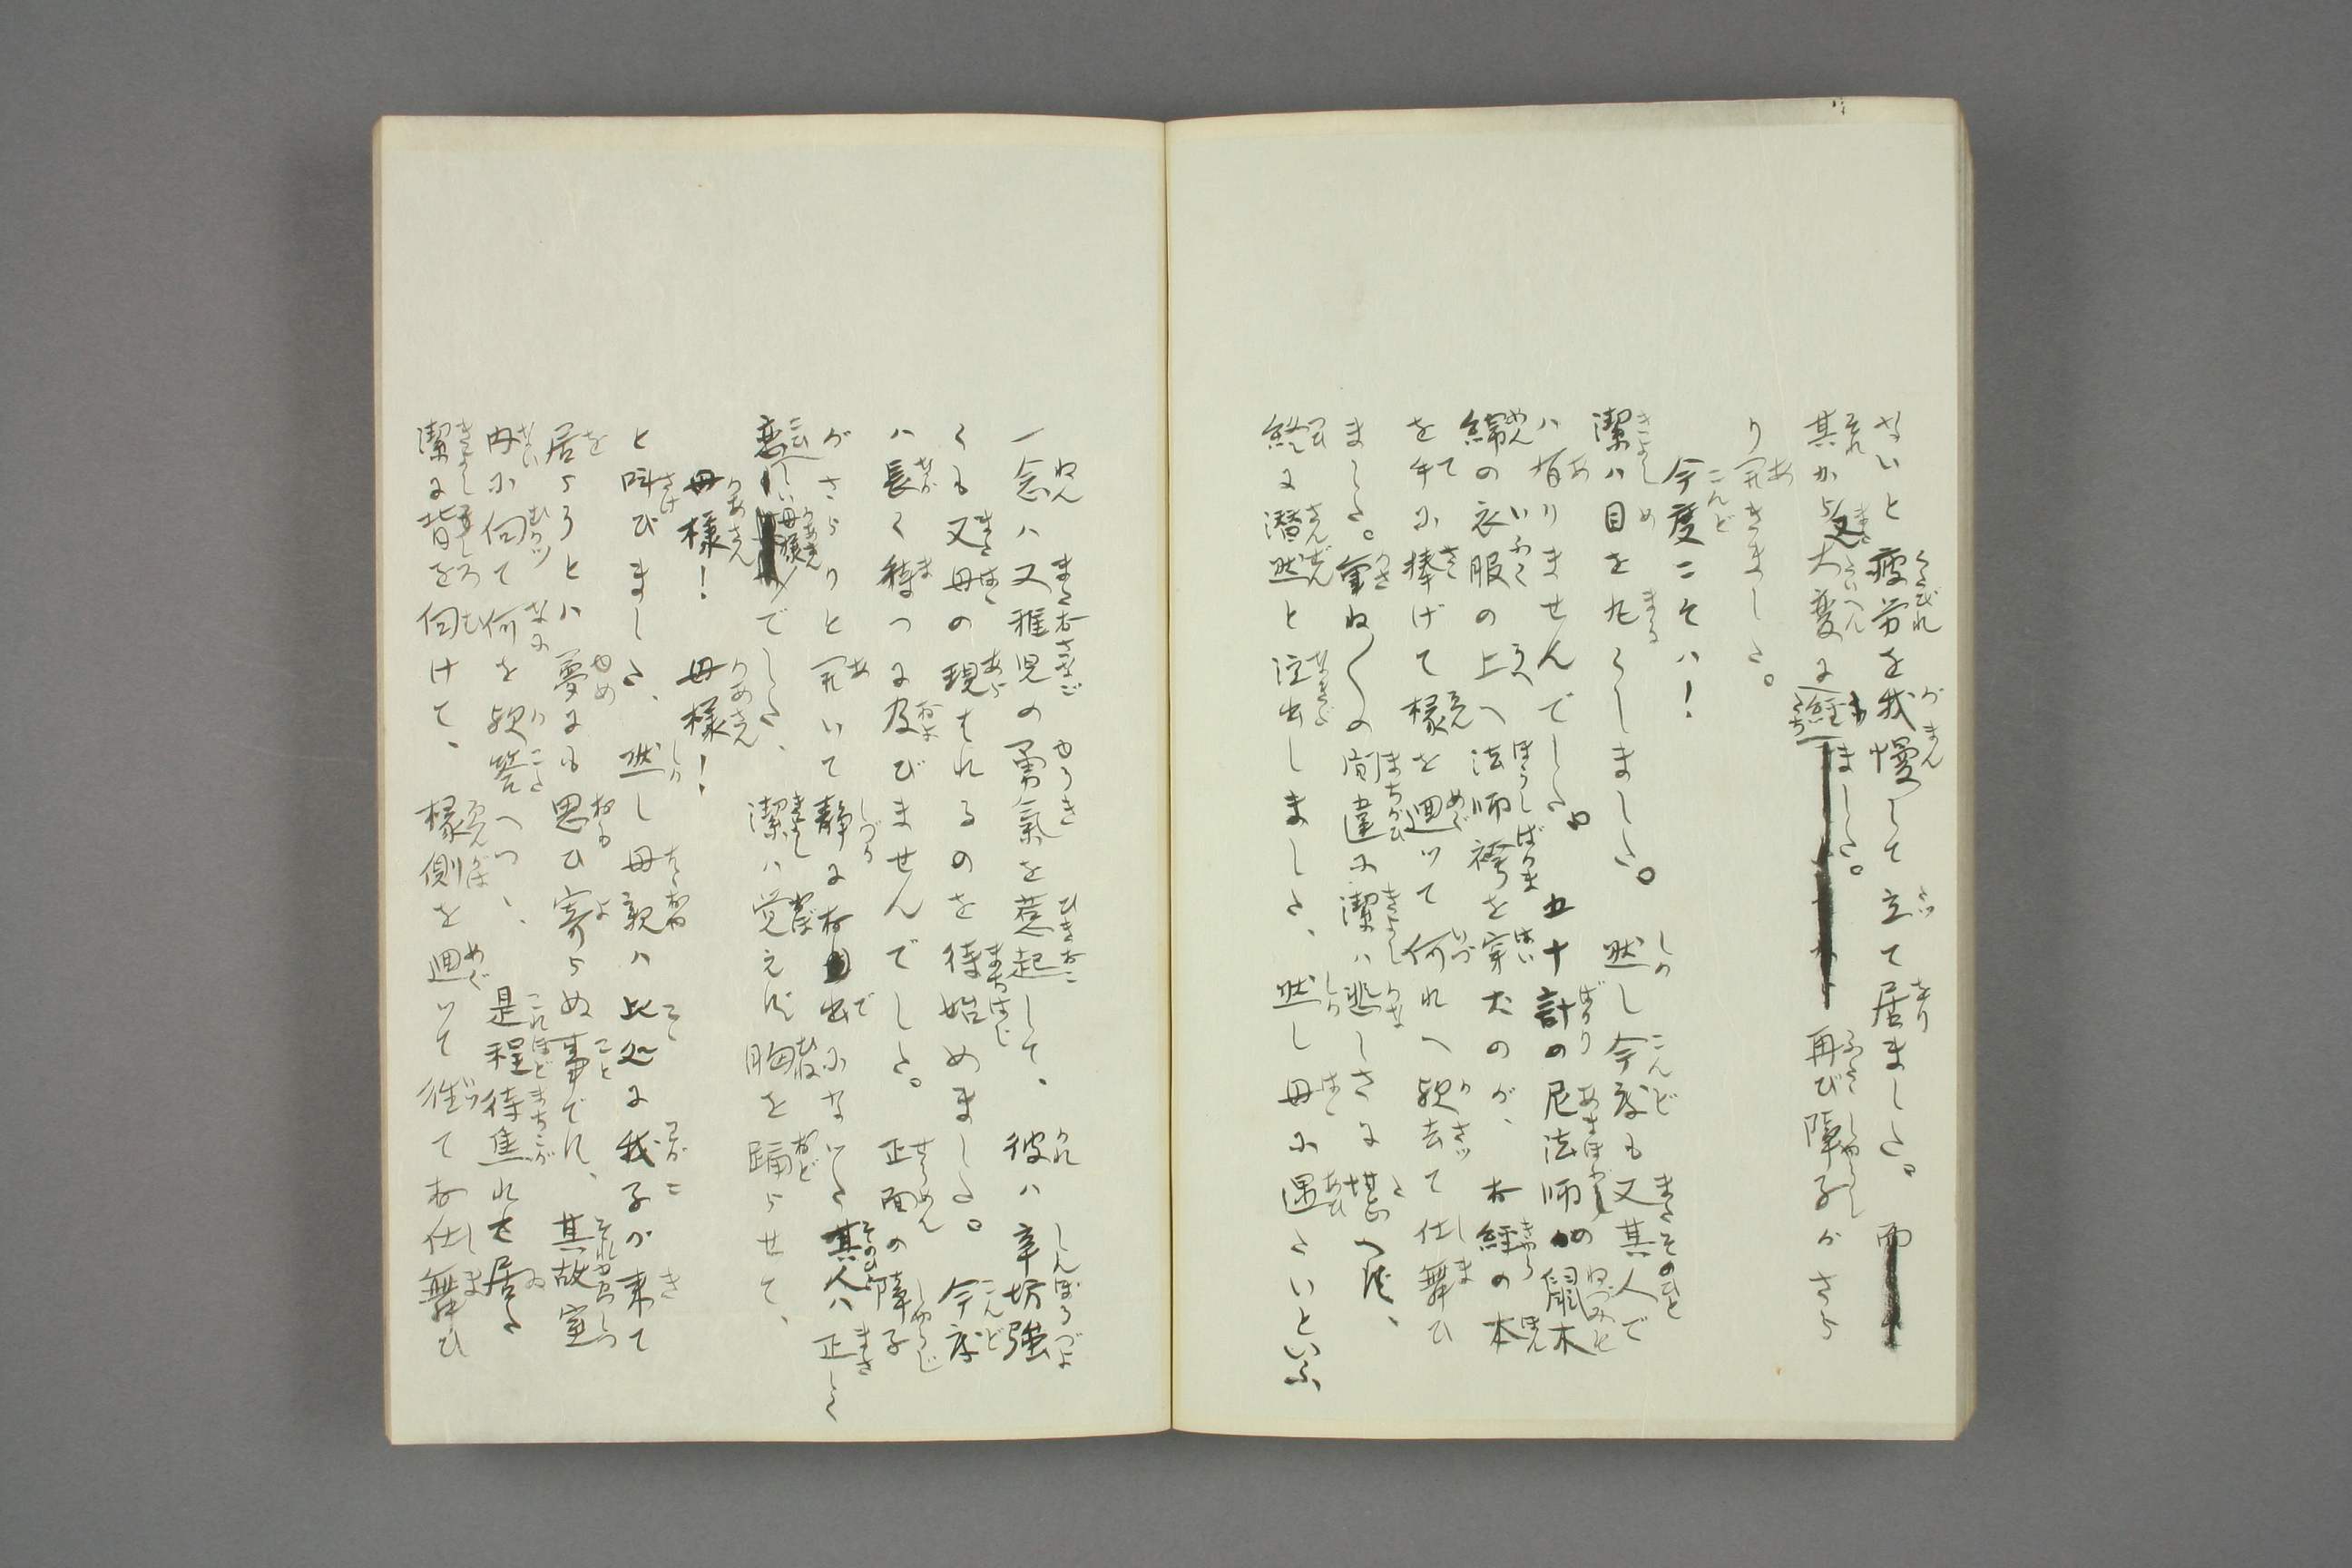 ないと疲労を我慢して立て居ました。而
其から又大変に経ました。再び障子がさら
り開きました。
今度こそハ！
潔ハ目を丸くしました。然し今度も又其人で
ハ有りませんでした。五十計の尼法師が鼠木
綿の衣服の上へ法師袴を穿たのが、お経の本
を手に捧げて椽を廻ッて何れへ歟去て仕舞ひ
ました。重ね〱の間違に潔ハ悲しさに堪へず、
終に潜然と泣出しました、然し母に遇たいといふ
一念ハ又稚児の勇氣を惹起して、彼ハ辛坊強
くも又母の現はれるのを待始めました。今度
ハ長く待つに及びませんでした。正面の障子
がさらりと開いて静にお出になッた其人ハ正しく
恋しい母様でした、潔ハ覚えず胸を踊らせて、
母様！母様！
と呌びました、然し母親ハ此処に我子が来て
居らうとハ夢にも思ひ寄らぬ事でれ、其故室
内に向て何を歟答へつゝ、是程待焦れて居た
潔に背を向けて、椽側を廻ッて往てお仕舞ひ